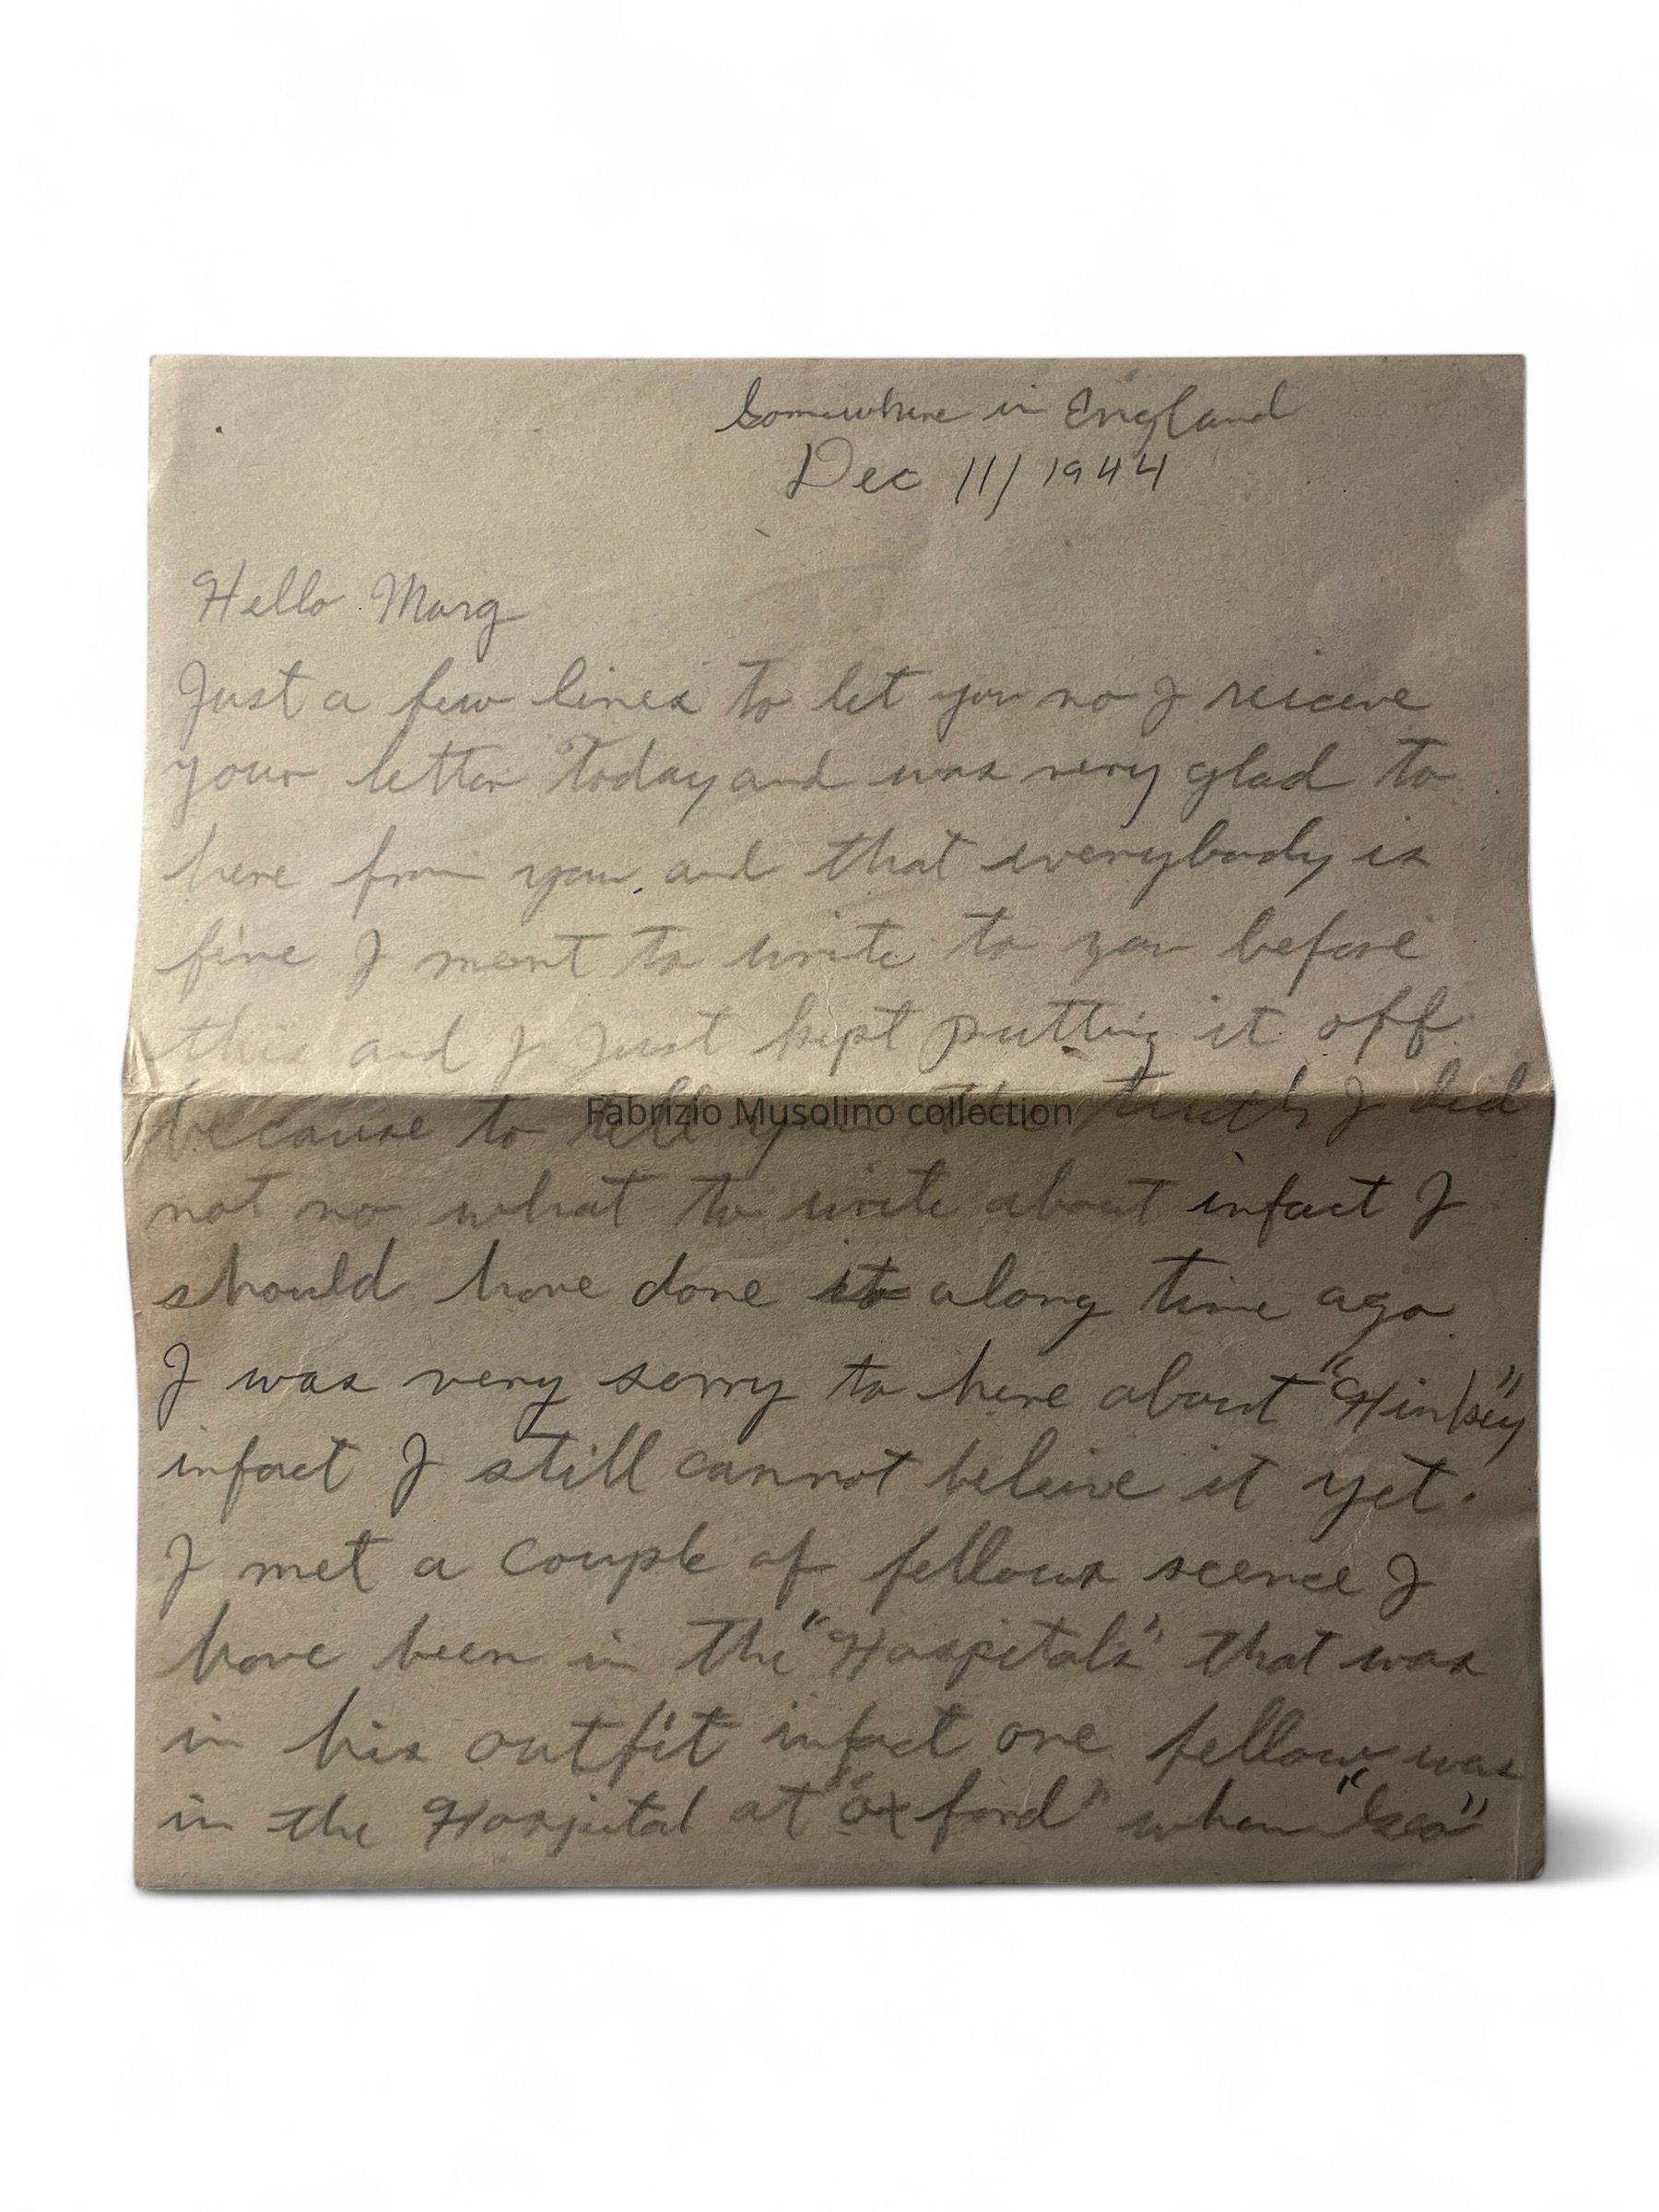 Somewhere in England
Dec 11/1944
Hello Marg
Just a few lines to let you no I reiceve
your letter today and was very glad to
here from you. and that everybody is
fine I ment to write to you before
this and I Just kept putting it off.
because to tell you the truth I did
Fabrizio Musolino collection
not no what to write about infact I
should have done it along time ago
I was very sorry to here about "Hinkey"
infact I still cannot beleive it yet.
I met a couple of fellows scence I
have been in the "Hospitals" that was
in his outfit infact one fellow was
in the Hospital at "Oxford" when